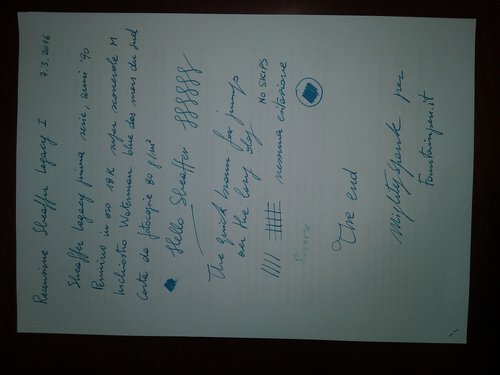 Recensione Sheaffer Legacy I 7.3.2016
Sheaffer Legacy prima serie, anni '90
Pennino in oro 18K rifer monorole M
Inchiostro Waterman blue des mers du sud
Carta da fotocopie 80 g/m²
Hello Sheaffer
The quick brown fox jumps
over the lazy dog
NO SKIPS
nessuna esitazione
Reverse
The end
Mightyspank per
Fountainpen.it